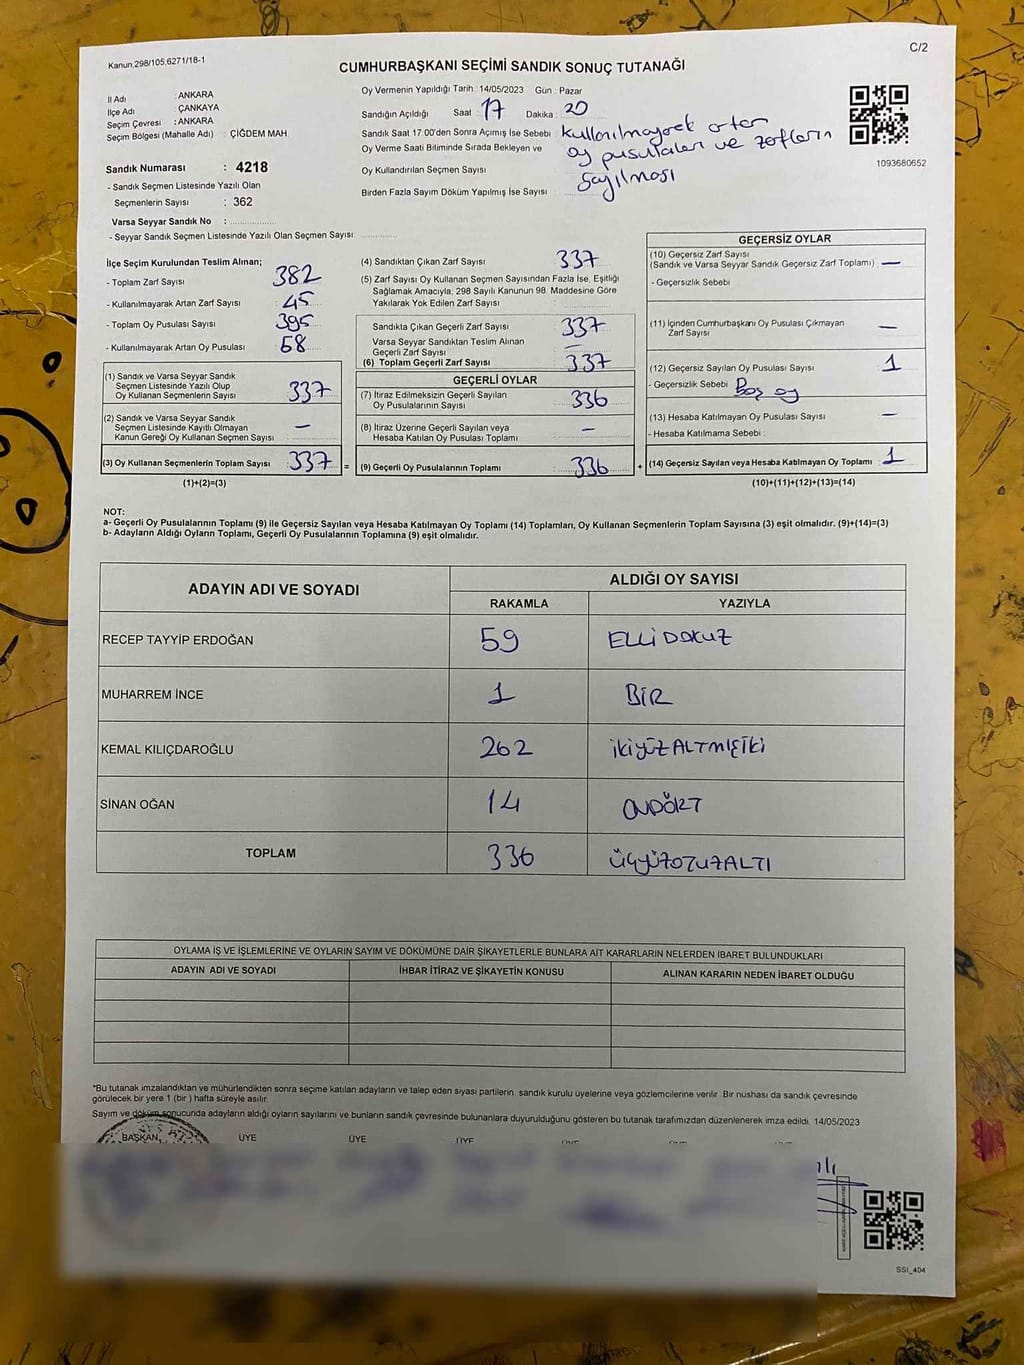 C/2
Kanun:298/105;6271/18-1
CUMHURBAŞKANI SEÇİMİ SANDIK SONUÇ TUTANAĞI
İl Adı : ANKARA
İlçe Adı : ÇANKAYA
Seçim Çevresi : ANKARA
Seçim Bölgesi (Mahalle Adı) : ÇİĞDEM MAH.
Sandık Numarası : 4218
- Sandık Seçmen Listesinde Yazılı Olan
Seçmenlerin Sayısı : 362
Varsa Seyyar Sandık No :
- Seyyar Sandık Seçmen Listesinde Yazılı Olan Seçmen Sayısı:
Oy Vermenin Yapıldığı Tarih : 14/05/2023 Gün : Pazar
Sandığın Açıldığı Saat : 17 Dakika : 20
Sandık Saat 17.00'den Sonra Açılmış İse Sebebi : Kullanılmayarak artan
oy pusulaları ve zarfların
sayılması
Oy Verme Saati Bitiminde Sırada Bekleyen ve
Oy Kullandırılan Seçmen Sayısı
Birden Fazla Sayım Döküm Yapılmış İse Sayısı
1093680652
İlçe Seçim Kurulundan Teslim Alınan;
- Toplam Zarf Sayısı : 382
- Kullanılmayarak Artan Zarf Sayısı : 45
- Toplam Oy Pusulası Sayısı : 395
- Kullanılmayarak Artan Oy Pusulası : 58
(1) Sandık ve Varsa Seyyar Sandık
Seçmen Listesinde Yazılı Olup
Oy Kullanan Seçmenlerin Sayısı : 337
(2) Sandık ve Varsa Seyyar Sandık
Seçmen Listesinde Kayıtlı Olmayan
Kanun Gereği Oy Kullanan Seçmen Sayısı : —
(3) Oy Kullanan Seçmenlerin Toplam Sayısı : 337 =
(1)+(2)=(3)
(4) Sandıktan Çıkan Zarf Sayısı : 337
(5) Zarf Sayısı Oy Kullanan Seçmen Sayısından Fazla İse, Eşitliği
Sağlamak Amacıyla, 298 Sayılı Kanunun 98. Maddesine Göre
Yakılarak Yok Edilen Zarf Sayısı :
Sandıkta Çıkan Geçerli Zarf Sayısı : 337
Varsa Seyyar Sandıktan Teslim Alınan
Geçerli Zarf Sayısı : —
(6) Toplam Geçerli Zarf Sayısı : 337
GEÇERLİ OYLAR
(7) İtiraz Edilmeksizin Geçerli Sayılan
Oy Pusulalarının Sayısı : 336
(8) İtiraz Üzerine Geçerli Sayılan veya
Hesaba Katılan Oy Pusulası Toplamı : —
(9) Geçerli Oy Pusulalarının Toplamı : 336 +
GEÇERSİZ OYLAR
(10) Geçersiz Zarf Sayısı
(Sandık ve Varsa Seyyar Sandık Geçersiz Zarf Toplamı) : —
- Geçersizlik Sebebi :
(11) İçinden Cumhurbaşkanı Oy Pusulası Çıkmayan
Zarf Sayısı : —
(12) Geçersiz Sayılan Oy Pusulası Sayısı : 1
- Geçersizlik Sebebi : Boş oy
(13) Hesaba Katılmayan Oy Pusulası Sayısı : —
- Hesaba Katılmama Sebebi :
(14) Geçersiz Sayılan veya Hesaba Katılmayan Oy Toplamı : 1
(10)+(11)+(12)+(13)=(14)
NOT:
a- Geçerli Oy Pusulalarının Toplamı (9) ile Geçersiz Sayılan veya Hesaba Katılmayan Oy Toplamı (14) Toplamları, Oy Kullanan Seçmenlerin Toplam Sayısına (3) eşit olmalıdır. (9)+(14)=(3)
b- Adayların Aldığı Oyların Toplamı, Geçerli Oy Pusulalarının Toplamına (9) eşit olmalıdır.
ADAYIN ADI VE SOYADI
ALDIĞI OY SAYISI
RAKAMLA YAZIYLA
RECEP TAYYİP ERDOĞAN 59 ELLİ DOKUZ
MUHARREM İNCE 1 BİR
KEMAL KILIÇDAROĞLU 262 İKİYÜZALTMIŞİKİ
SİNAN OĞAN 14 ONDÖRT
TOPLAM 336 ÜÇYÜZOTUZALTI
OYLAMA İŞ VE İŞLEMLERİNE VE OYLARIN SAYIM VE DÖKÜMÜNE DAİR ŞİKAYETLERLE BUNLARA AİT KARARLARIN NELERDEN İBARET BULUNDUKLARI
ADAYIN ADI VE SOYADI İHBAR İTİRAZ VE ŞİKAYETİN KONUSU ALINAN KARARIN NEDEN İBARET OLDUĞU
*Bu tutanak imzalandıktan ve mühürlendikten sonra seçime katılan adayların ve talep eden siyasi partilerin sandık kurulu üyelerine veya gözlemcilerine verilir. Bir nüshası da sandık çevresinde
görülecek bir yere 1 (bir ) hafta süreyle asılır.
Sayım ve döküm sonucunda adayların aldığı oyların sayılarını ve bunların sandık çevresinde bulunanlara duyurulduğunu gösteren bu tutanak tarafımızdan düzenlenerek imza edildi. 14/05/2023
BAŞKAN ÜYE ÜYE ÜYE
SSI_404